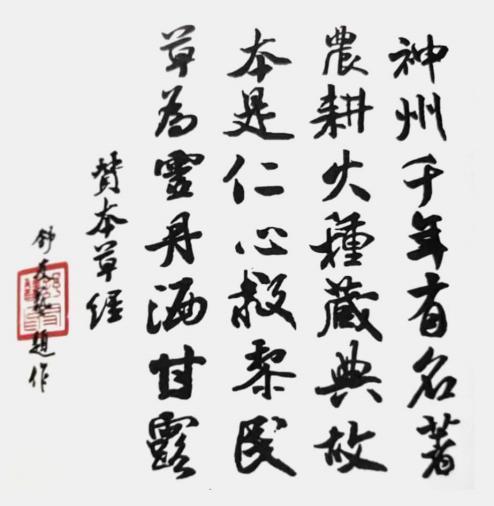 神州千年有名著
農耕火種蔵典故
本是仁心救黎民
草為靈丹洒甘露
賛本草經
舒友艺題作